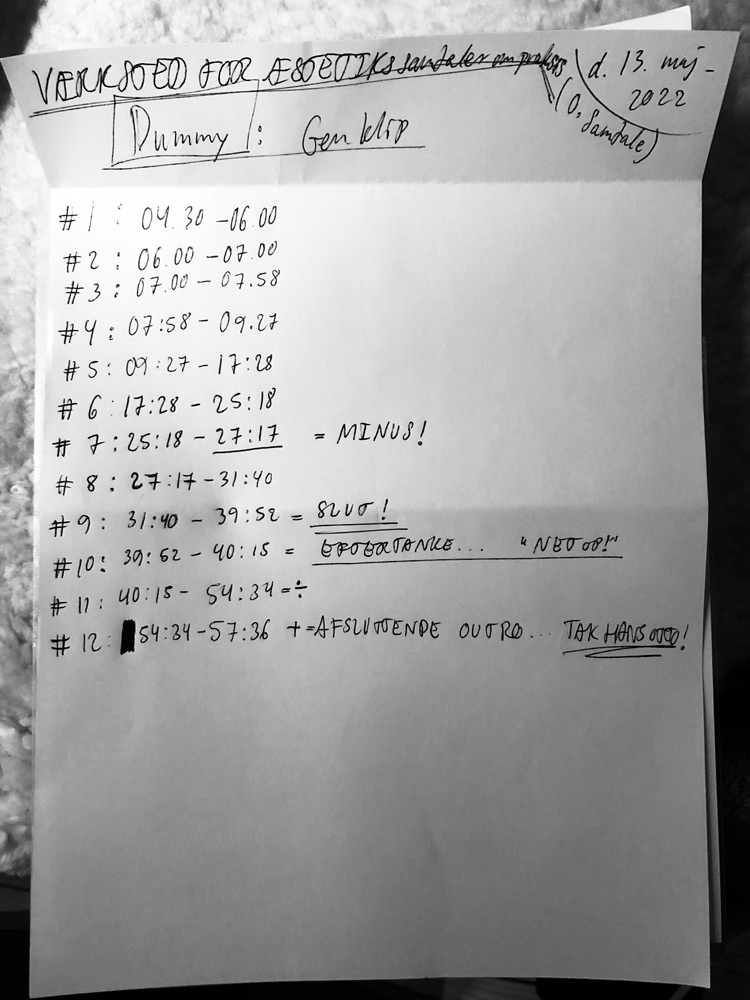 VÆRKSTED FOR ÆSTETIKS samtaler om praksis
d. 13. maj
2022
(0, Samtale)
Dummy: Genklip
#1: 04.30 - 06.00
#2: 06.00 - 07.00
#3: 07.00 - 07.58
#4: 07:58 - 09.27
#5: 09:27 - 17:28
#6: 17:28 - 25:18
#7: 25:18 - 27:17 = MINUS!
#8: 27:17 - 31:40
#9: 31:40 - 39:52 = SLUT!
#10: 39:52 - 40:15 = EFTERTANKE... "NETOP!"
#11: 40:15 - 54:34 = ÷
#12: 54:34 - 57:36 + = AFSLUTTENDE OUTRO... TAK HANS OTTO!